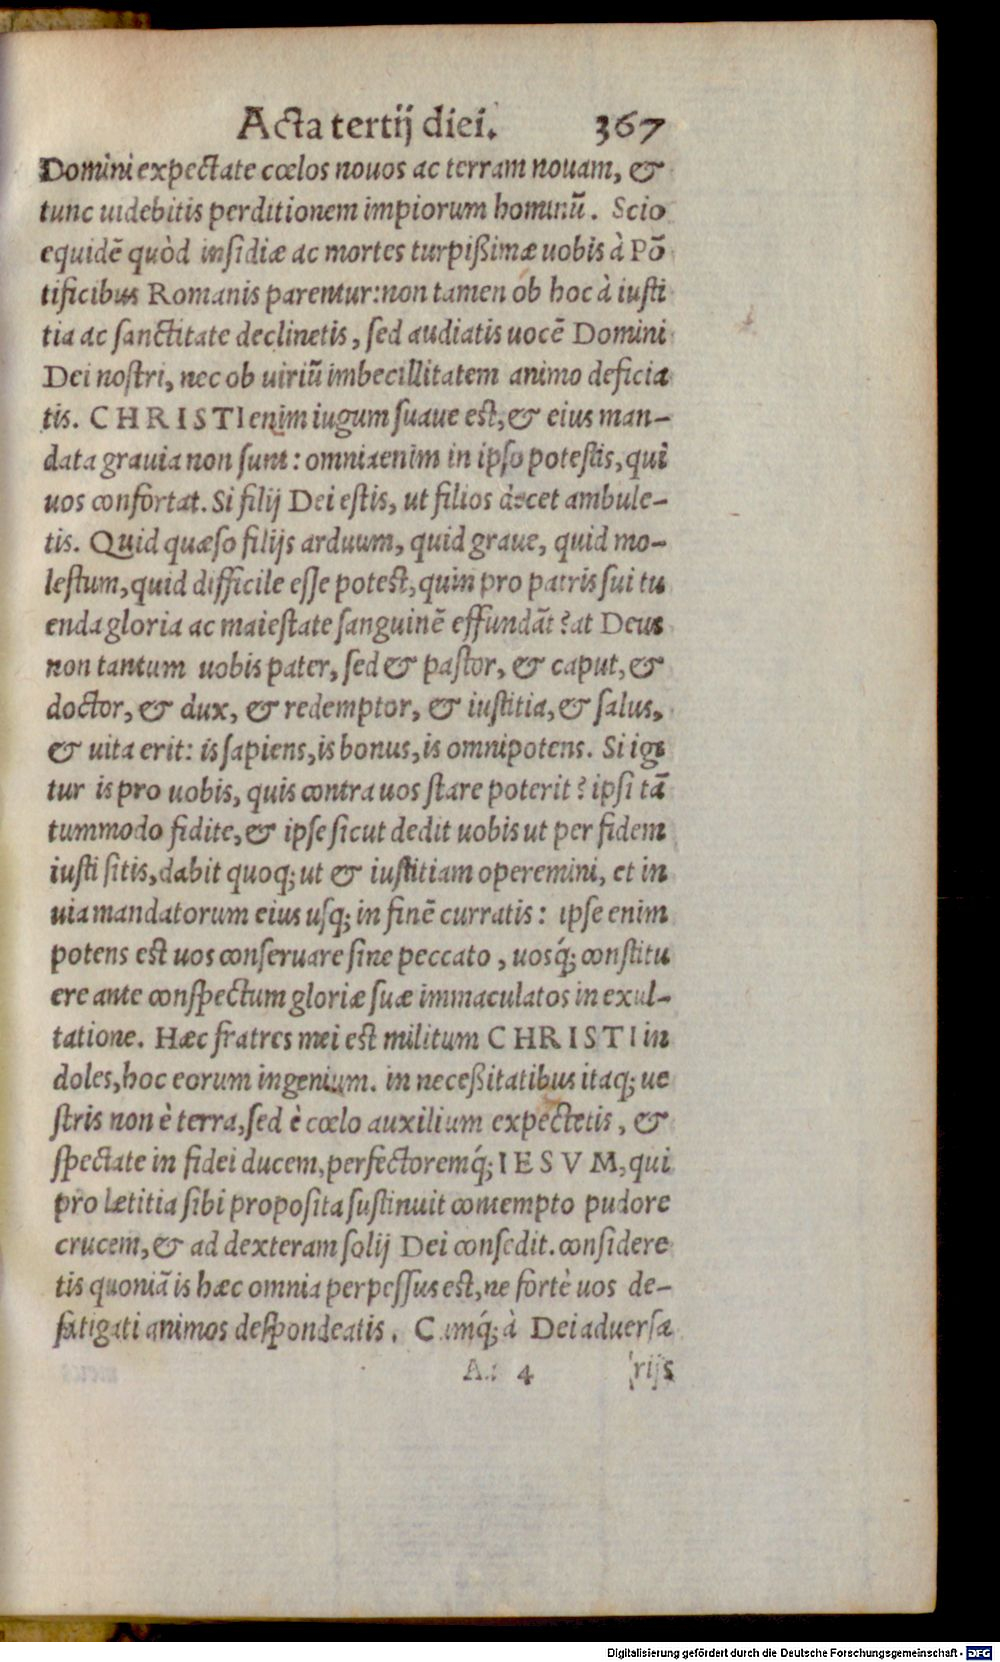 Acta tertij diei. 367
Domini expectate cœlos nouos ac terram nouam, &
tunc uidebitis perditionem impiorum hominū. Scio
equidē quòd insidiæ ac mortes turpißimæ uobis à Pō
tificibus Romanis parentur: non tamen ob hoc à iusti
tia ac sanctitate declinetis, sed audiatis uocē Domini
Dei nostri, nec ob uiriū imbecillitatem animo deficia
tis. CHRISTI enim iugum suaue est, & eius man-
data grauia non sunt: omnia enim in ipso potestis, qui
uos confortat. Si filij Dei estis, ut filios decet ambule-
tis. Quid quæso filijs arduum, quid graue, quid mo-
lestum, quid difficile esse potest, quin pro patris sui tu
enda gloria ac maiestate sanguinē effundāt? at Deus
non tantum uobis pater, sed & pastor, & caput, &
doctor, & dux, & redemptor, & iustitia, & salus,
& uita erit: is sapiens, is bonus, is omnipotens. Si igi
tur is pro uobis, quis contra uos stare poterit? ipsi tā
tummodo fidite, & ipse sicut dedit uobis ut per fidem
iusti sitis, dabit quoq; ut & iustitiam operemini, et in
uia mandatorum eius usq; in finē curratis: ipse enim
potens est uos conseruare sine peccato, uosq́; constitu
ere ante conspectum gloriæ suæ immaculatos in exul-
tatione. Hæc fratres mei est militum CHRISTI in
doles, hoc eorum ingenium. in neceßitatibus itaq; ue
stris non è terra, sed è cœlo auxilium expectetis, &
spectate in fidei ducem, perfectoremq́; IESVM, qui
pro lætitia sibi proposita sustinuit contempto pudore
crucem, & ad dexteram solij Dei consedit. considere
tis quoniā is hæc omnia perpessus est, ne fortè uos de-
fatigati animos despondeatis. Cumq́; à Dei aduersa
4 rijs
Digitalisierung gefördert durch die Deutsche Forschungsgemeinschaft - DFG